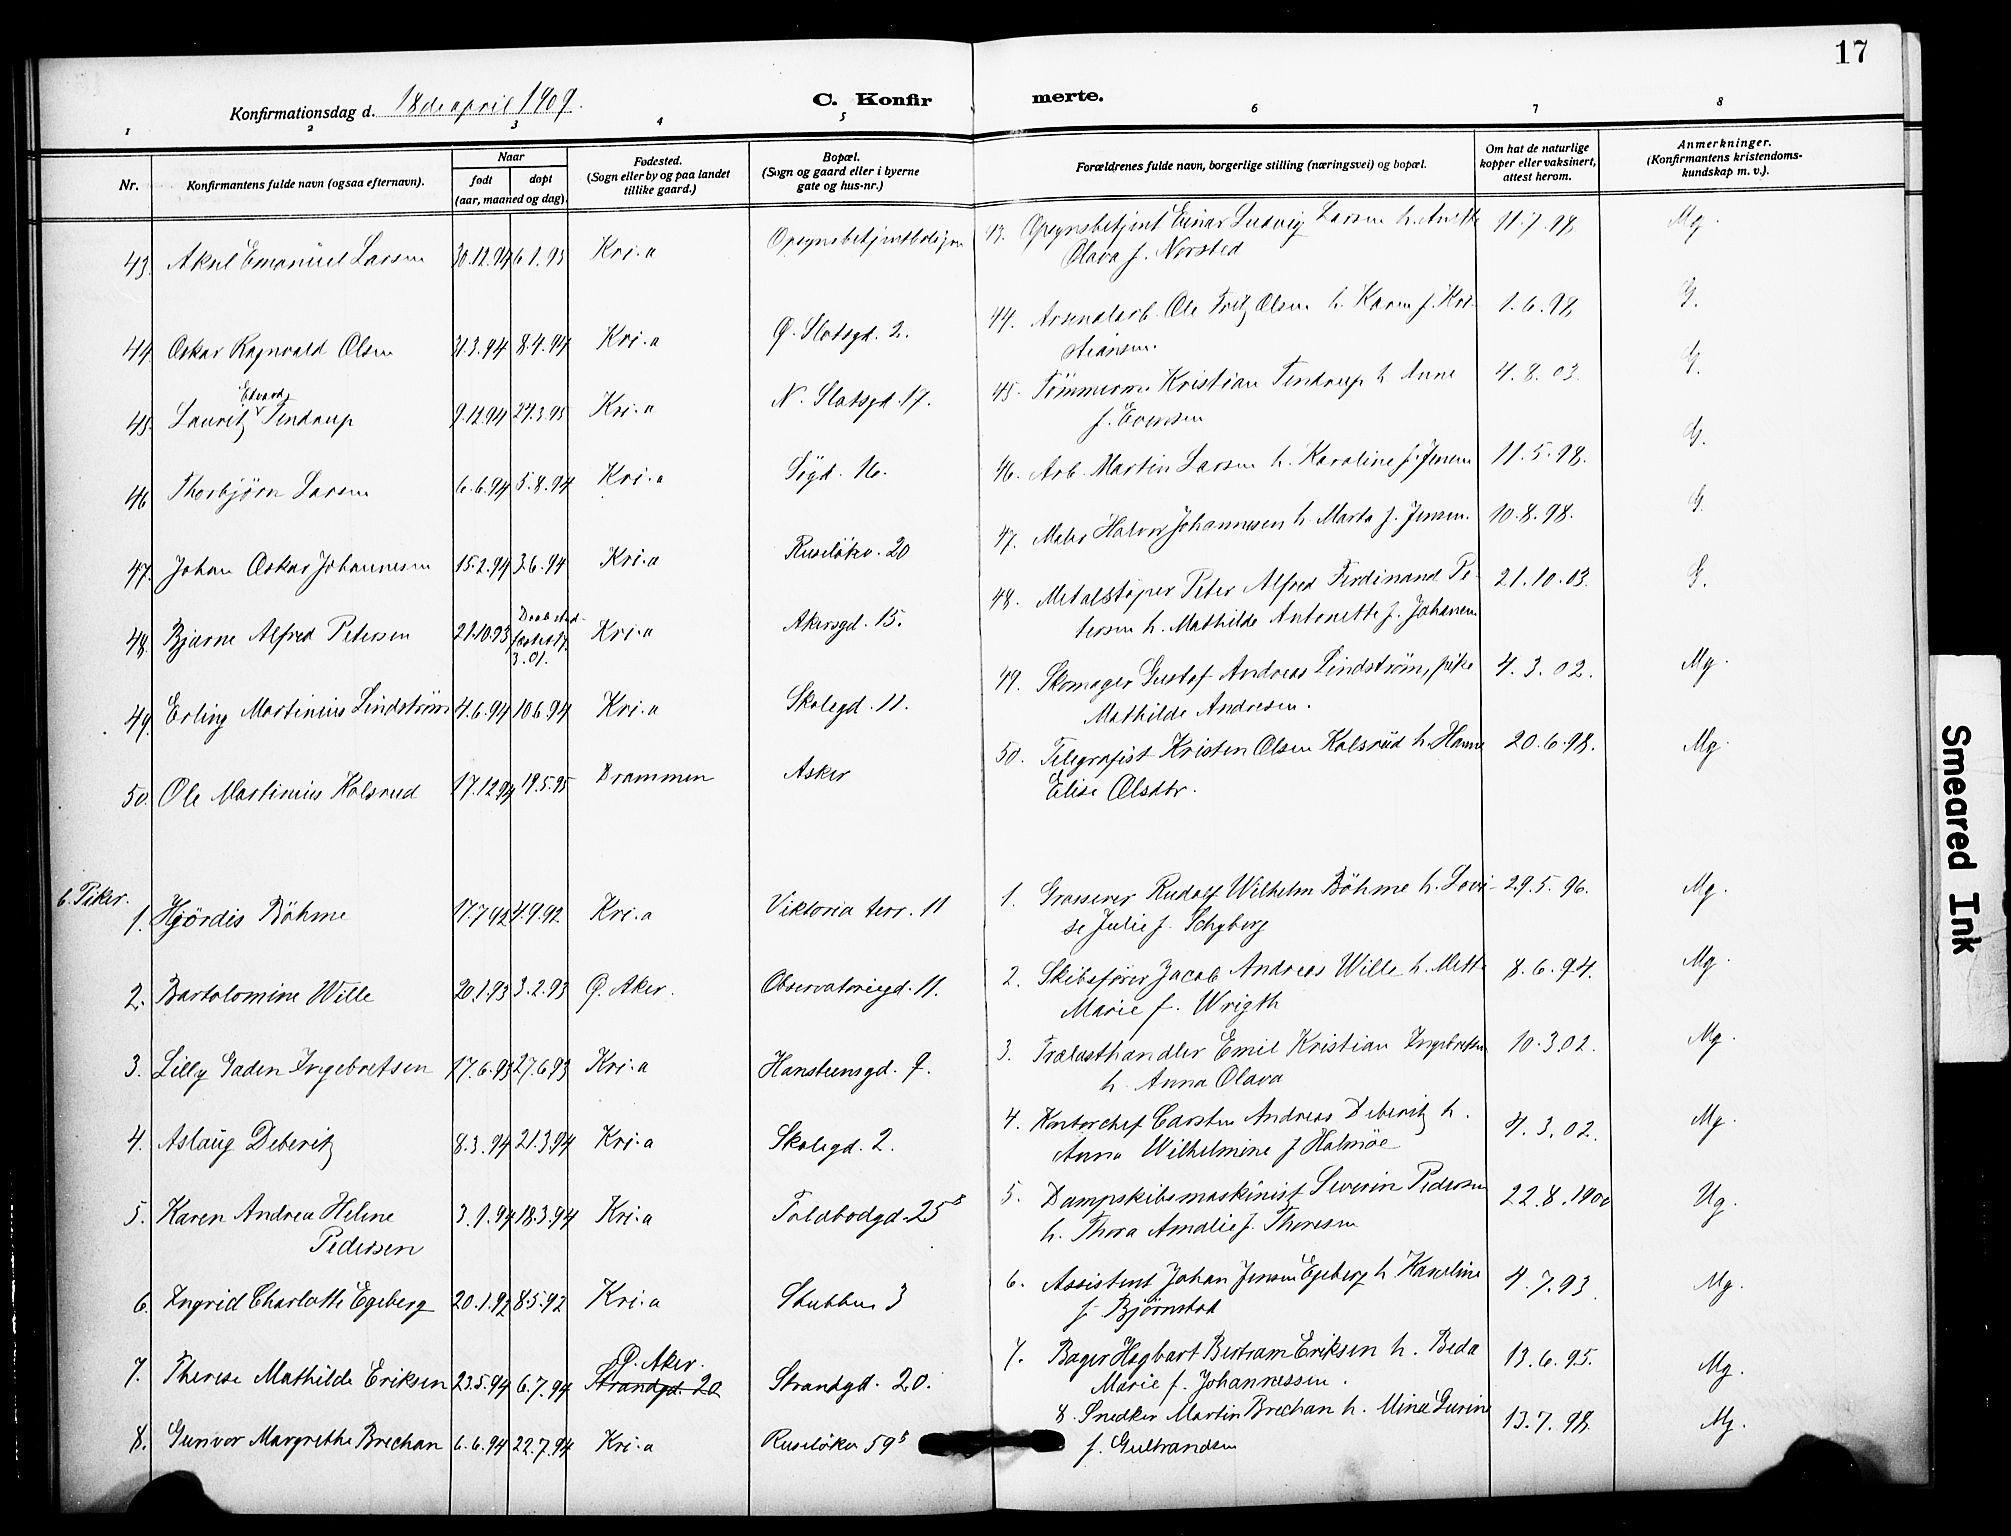 17
Konfirmationsdag d. 18de april 1909.
C. Konfirmerte.
1 2 3 4 5 6 7 8
Nr.
Konfirmantens fulde navn (ogsaa efternavn).
Naar
født
døpt
(aar, maaned og dag).
Fødested.
(Sogn eller by og paa landet
tillike gaard.)
Bopæl.
(Sogn og gaard eller i byerne
gate og hus-nr.)
Forældrenes fulde navn, borgerlige stilling (næringsvei) og bopæl.
Om hat de naturlige
kopper eller vaksinert,
attest herom.
Anmerkninger.
(Konfirmantens kristendoms-
kundskap m. v.).
43. Aksel Emanuel Larsen 30.12.94 6.1.95 Kri.a Opsynsbetjentboligen 43. Opsynsbetjent Einar Ludvig Larsen h. Anette 11.7.98 Mg.
Olava f. Norsted
44 Oskar Ragnvald Olsen 31.3.94 8.4.94 Kri.a Ø. Slotsgd. 2. 44. Arsenalarb. Ole Fritz Olsen h. Karen f. Kri- 1.6.98 G.
stiansen.
Edvard
45. Lauritz Tindrup 9.12.94 24.3.95 Kri.a N. Slotsgd. 17. 45. Tømmerm. Kristian Tindrup h. Anne 4.8.03. G.
f. Evensen
46 Thorbjørn Larsen 6.6.94 5.8.94 Kri.a Søgd. 16. 46. Arb. Martin Larsen h. Karoline f. Jensen 11.5.98. G.
47. Johan Oskar Johannesen 15.2.94 3.6.94 Kri.a Ruseløkv. 20 47. Maler Halvor Johannesen h. Marta f. Jensen. 10.8.98. G.
48. Bjarne Alfred Petersen 21.10.93 Kri.a Akersgd. 15. 48. Metalstøper Peter Alfred Ferdinand Pe- 21.10.03. G.
3.01.
tersen h. Mathilde Antonette f. Johansen
49. Erling Martinius Lindstrøm 4.6.94 10.6.94 Kri.a Skolegd. 11. 49. Skomager Gustaf Andreas Lindstrøm, pike 4.3.02. Mg.
Mathilde Andresen.
50. Ole Martinius Kolsrud 17.12.94 19.5.95 Drammen Asker 50. Telegrafist Kristen Olsen Kolsrud h. Hanne 20.6.98. Mg.
Elise Olsdtr.
b. Piker.
1. Hjördis Böhme 17.7.92 4.9.92 Kri.a Viktoria terr. 11 1. Grosserer Rudolf Wilhelm Böhme h. Lovi- 29.5.96. Mg.
se Julie f. Schyberg
2. Bartolomine Wille 20.1.93 3.2.93 Ø. Aker. Observatoriegd. 11. 2. Skibsfører Jacob Andreas Wille h. Mette 8.6.94. Mg.
Marie f. Wrigth
3. Lilly Gaden Ingebretsen 17.6.93 27.6.93 Kri.a Hansteensgd. 9. 3. Trælasthandler Emil Kristian Ingebretsen 10.3.02. Mg.
h. Anna Olava
4. Aslaug Deberitz 8.3.94 21.3.94 Kri.a Skolegd. 2. 4. Kontorchef Carsten Andreas Deberitz h. 4.3.02. Mg.
Anna Wilhelmine f. Holmøe
5. Karen Andrea Helene 3.1.94 18.3.94 Kri.a Toldbodgd. 25 5. Dampskibsmaskinist Severin Pedersen 22.8.1900 Ug.
Pedersen
h. Thora Amalie f. Thoresen
6. Ingrid Charlotte Egeberg 20.1.92 8.5.92 Kri.a Stubben 3 6. Assistent Johan Jensen Egeberg h. Karoline 4.7.93. Mg.
f. Bjørnstad
7. Therese Mathilde Eriksen 23.5.94 6.7.94 Ø. Aker. Strandgd. 20 Strandgd. 20. 7. Bager Hagbart Bertram Eriksen h. Beda 13.6.95. Mg.
Marie f. Johannessen.
8. Gunvor Margrethe Brechan 6.6.94 22.7.94 Kri.a Ruseløkv 59 8. Snedker Martin Brechan h. Mina Gurine 13.7.98. Mg.
f. Gulbrandsen
Smeared Ink